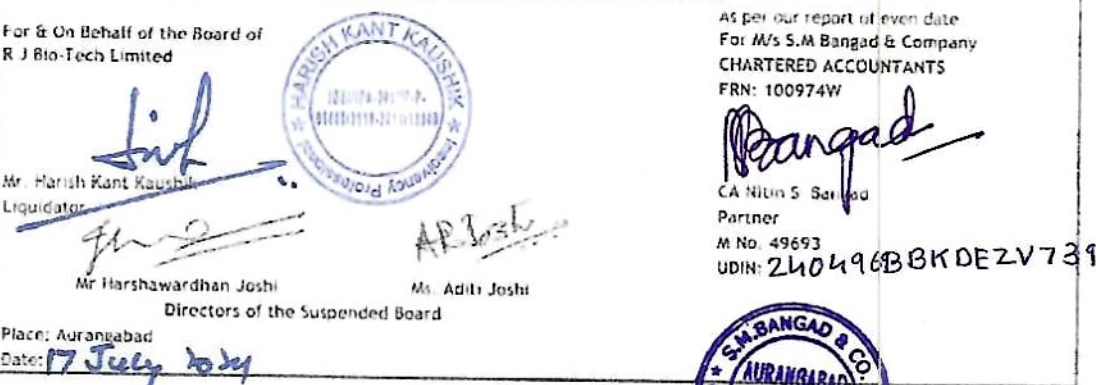 For & On Behalf of the Board of
R J Bio-Tech Limited
HARISH KANT KAUSHIK
Insolvency Professional
Mr. Harish Kant Kaushik
Liquidator
A.R. Joshi
Mr Harshawardhan Joshi
Ms. Aditi Joshi
Directors of the Suspended Board
Place: Aurangabad
Date: 17 July 2024
As per our report of even date
For M/s S.M Bangad & Company
CHARTERED ACCOUNTANTS
FRN: 100974W
Bangad
CA Nitin S Bangad
Partner
M No. 49693
UDIN:
S.M.BANGAD & CO.
AURANGABAD